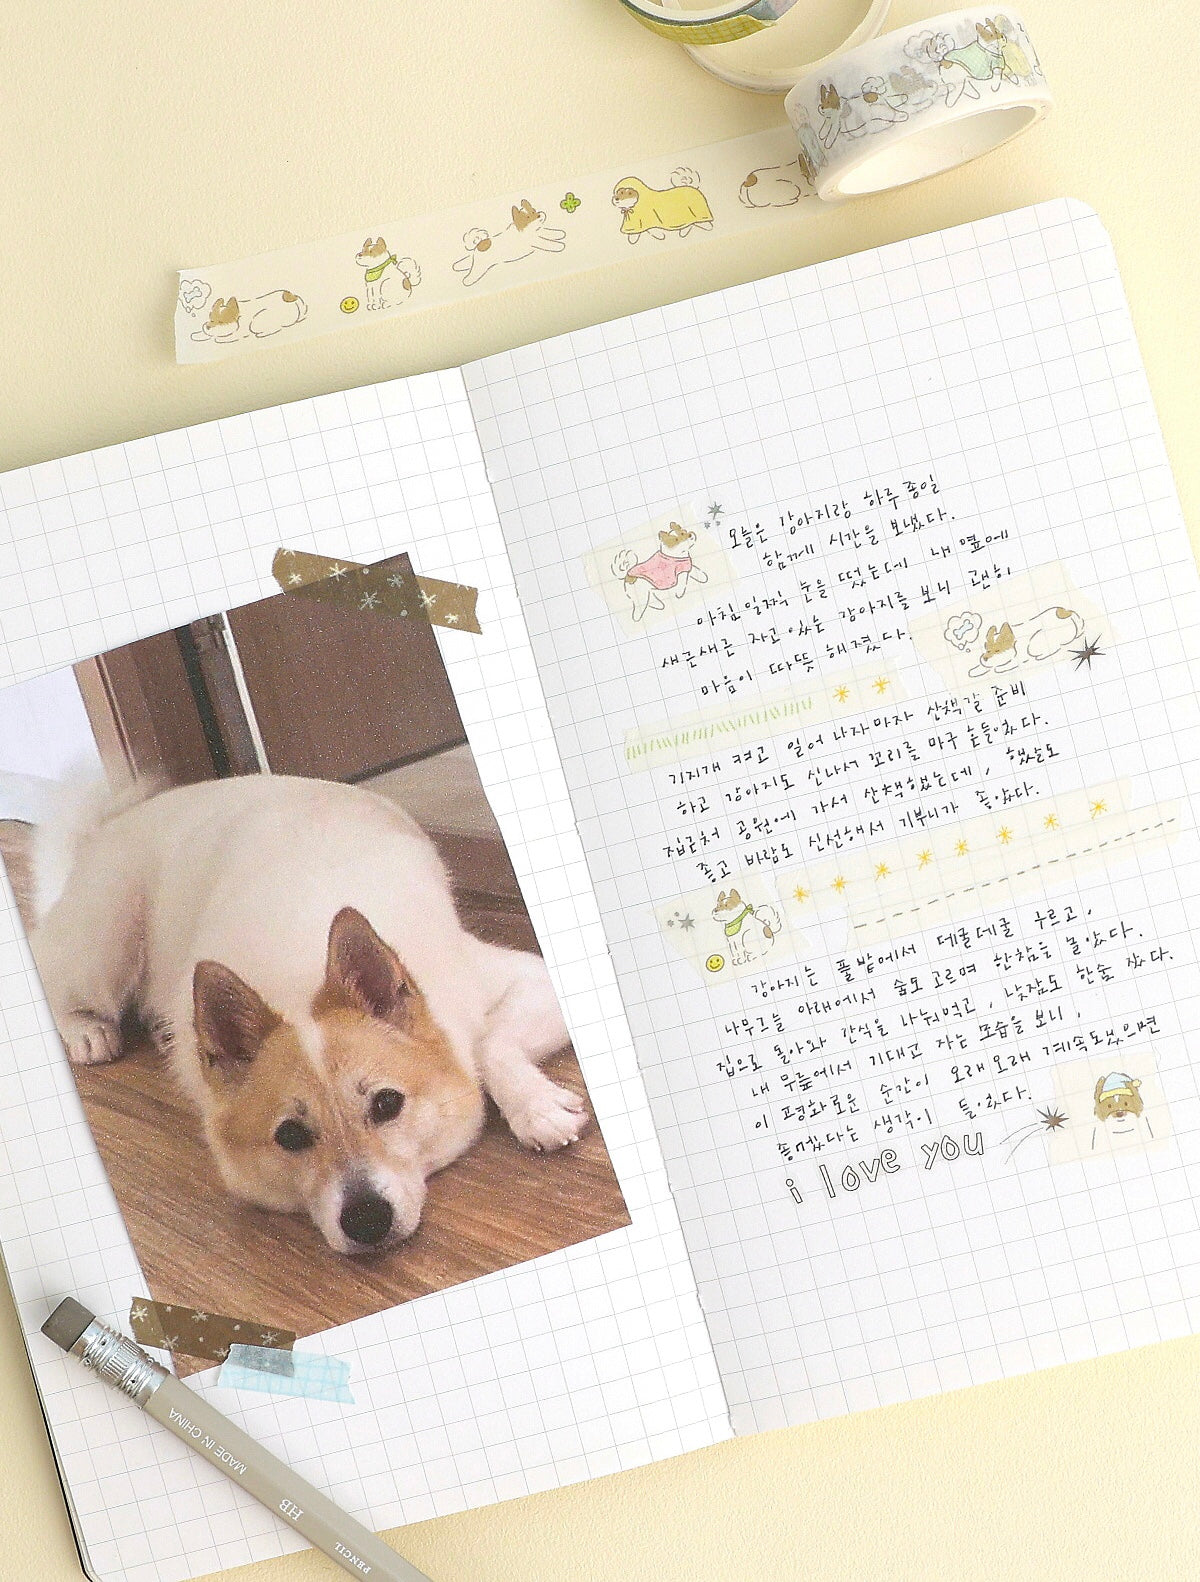 오늘은 강아지랑 하루종일
함께 시간을 보냈다.
아침일찍 눈을 떴는데 내 옆에
새근새근 자고있는 강아지를 보니 괜히
마음이 따뜻해졌다.
기지개 켜고 일어나자마자 산책갈 준비
하고 강아지도 신나서 꼬리를 마구 흔들었다.
집근처 공원에 가서 산책했는데, 햇살도
좋고 바람도 신선해서 기부니가 좋았다.
강아지는 풀밭에서 데굴데굴 구르고,
나무그늘 아래에서 숨도 고르며 한참을 놀았다.
집으로 돌아와 간식을 나눠먹고, 낮잠도 한숨 잤다.
내 무릎에서 기대고 자는 모습을 보니,
이 평화로운 순간이 오래오래 계속됐으면
좋겠다는 생각이 들었다.
i love you
MADE IN CHINA
HB
PENCIL